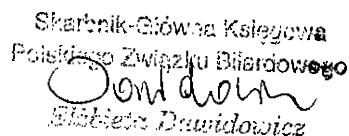 Skarbnik-Główna Księgowa
Polskiego Związku Bilardowego
Dawidowicz
Elżbieta Dawidowicz